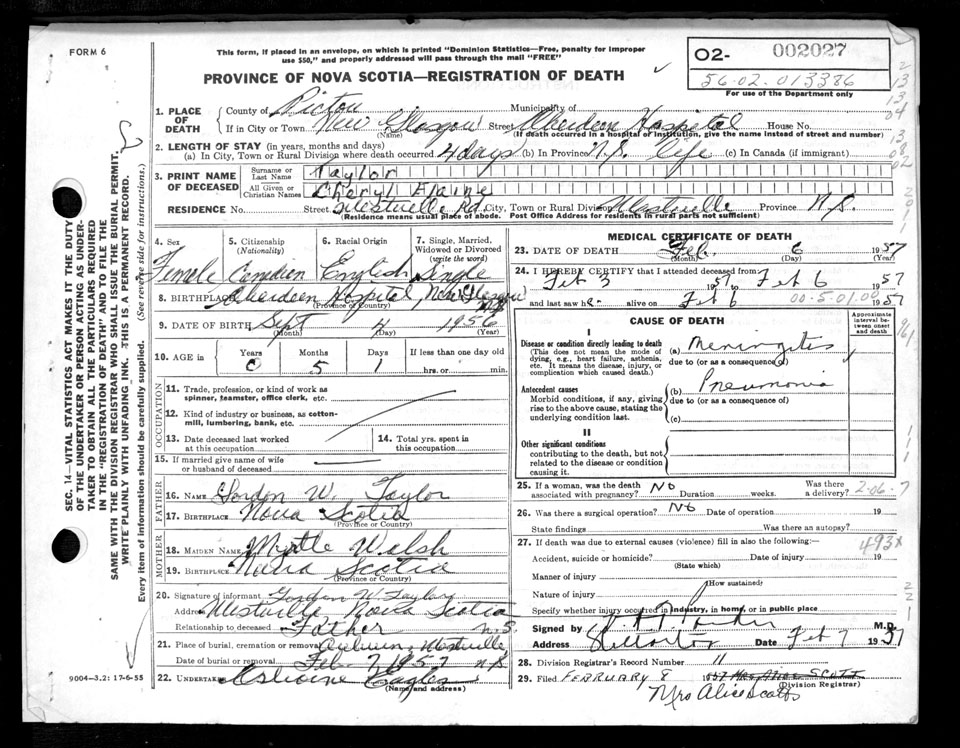 FORM 6
This form, if placed in an envelope, on which is printed "Dominion Statistics—Free, penalty for improper
use $50," and properly addressed will pass through the mail "FREE"
PROVINCE OF NOVA SCOTIA—REGISTRATION OF DEATH
O2- 002027
56-02-013386
For use of the Department only
1. PLACE OF DEATH
County of Pictou Municipality of
If in City or Town New Glasgow Street Aberdeen Hospital House No.
(Name) (If death occurred in a hospital or institution, give the name instead of street and number)
2. LENGTH OF STAY (in years, months and days)
(a) In City, Town or Rural Division where death occurred 4 days (b) In Province N.S. life (c) In Canada (if immigrant)
3. PRINT NAME OF DECEASED
Surname or Last Name Taylor
All Given or Christian Names Cheryl Elaine
RESIDENCE No. Street Westville Rd. City, Town or Rural Division Province N.S.
(Residence means usual place of abode. Post Office Address for residents in rural parts not sufficient)
4. Sex Female
5. Citizenship (Nationality) Canadian
6. Racial Origin English
7. Single, Married, Widowed or Divorced (write the word) Single
8. BIRTHPLACE Aberdeen Hospital New Glasgow N.S.
(Province or Country)
9. DATE OF BIRTH Sept 4 1956
(Month) (Day) (Year)
10. AGE in Years Months Days If less than one day old
0 5 1 hrs. or min.
OCCUPATION
11. Trade, profession, or kind of work as
spinner, teamster, office clerk, etc.
12. Kind of industry or business, as cotton-
mill, lumbering, bank, etc.
13. Date deceased last worked
at this occupation
14. Total yrs. spent in
this occupation
15. If married give name of wife
or husband of deceased
FATHER
16. NAME Gordon W. Taylor
17. BIRTHPLACE Nova Scotia
(Province or Country)
MOTHER
18. MAIDEN NAME Myrtle Walsh
19. BIRTHPLACE Nova Scotia
(Province or Country)
20. Signature of informant Gordon W. Taylor
Address Westville Nova Scotia
Relationship to deceased Father N.S.
21. Place of burial, cremation or removal Auburn, Westville
Date of burial or removal Feb. 7 1957 N.S.
22. UNDERTAKER Osborne Eagles
(Name and address)
MEDICAL CERTIFICATE OF DEATH
23. DATE OF DEATH Feb. 6 1957
(Month) (Day) (Year)
24. I HEREBY CERTIFY that I attended deceased from
Feb 3 1957 to Feb 6 1957
and last saw h alive on Feb 6 1957
00-5.01.00
CAUSE OF DEATH
Approximate interval between onset and death
I
Disease or condition directly leading to death
(This does not mean the mode of
dying, e.g., heart failure, asthenia,
etc. It means the disease, injury, or
complication which caused death.)
(a) Meningitis
due to (or as a consequence of)
Antecedent causes
Morbid conditions, if any, giving
rise to the above cause, stating the
underlying condition last.
(b) Pneumonia
due to (or as a consequence of)
(c)
II
Other significant conditions
contributing to the death, but not
related to the disease or condition
causing it.
25. If a woman, was the death No Was there
associated with pregnancy? Duration weeks. a delivery? 2-06-7
26. Was there a surgical operation? No Date of operation 19
State findings Was there an autopsy?
27. If death was due to external causes (violence) fill in also the following:— 493x
Accident, suicide or homicide? Date of injury 19
(State which)
Manner of injury
(How sustained)
Nature of injury
Specify whether injury occurred in industry, in home, or in public place
Signed by M.D.
Address Stellarton Date Feb 7 1957
28. Division Registrar's Record Number 11
29. Filed FEBRUARY 8 1957
(Division Registrar)
Mrs Alice Scott
9004-3.2: 17-6-55
SEC. 14—VITAL STATISTICS ACT MAKES IT THE DUTY
OF THE UNDERTAKER OR PERSON ACTING AS UNDER-
TAKER TO OBTAIN ALL THE PARTICULARS REQUIRED
IN THE "REGISTRATION OF DEATH" AND TO FILE THE
SAME WITH THE DIVISION REGISTRAR WHO SHALL ISSUE THE BURIAL PERMIT.
WRITE PLAINLY WITH UNFADING INK. THIS IS A PERMANENT RECORD.
Every item of information should be carefully supplied. (See reverse side for instructions.)